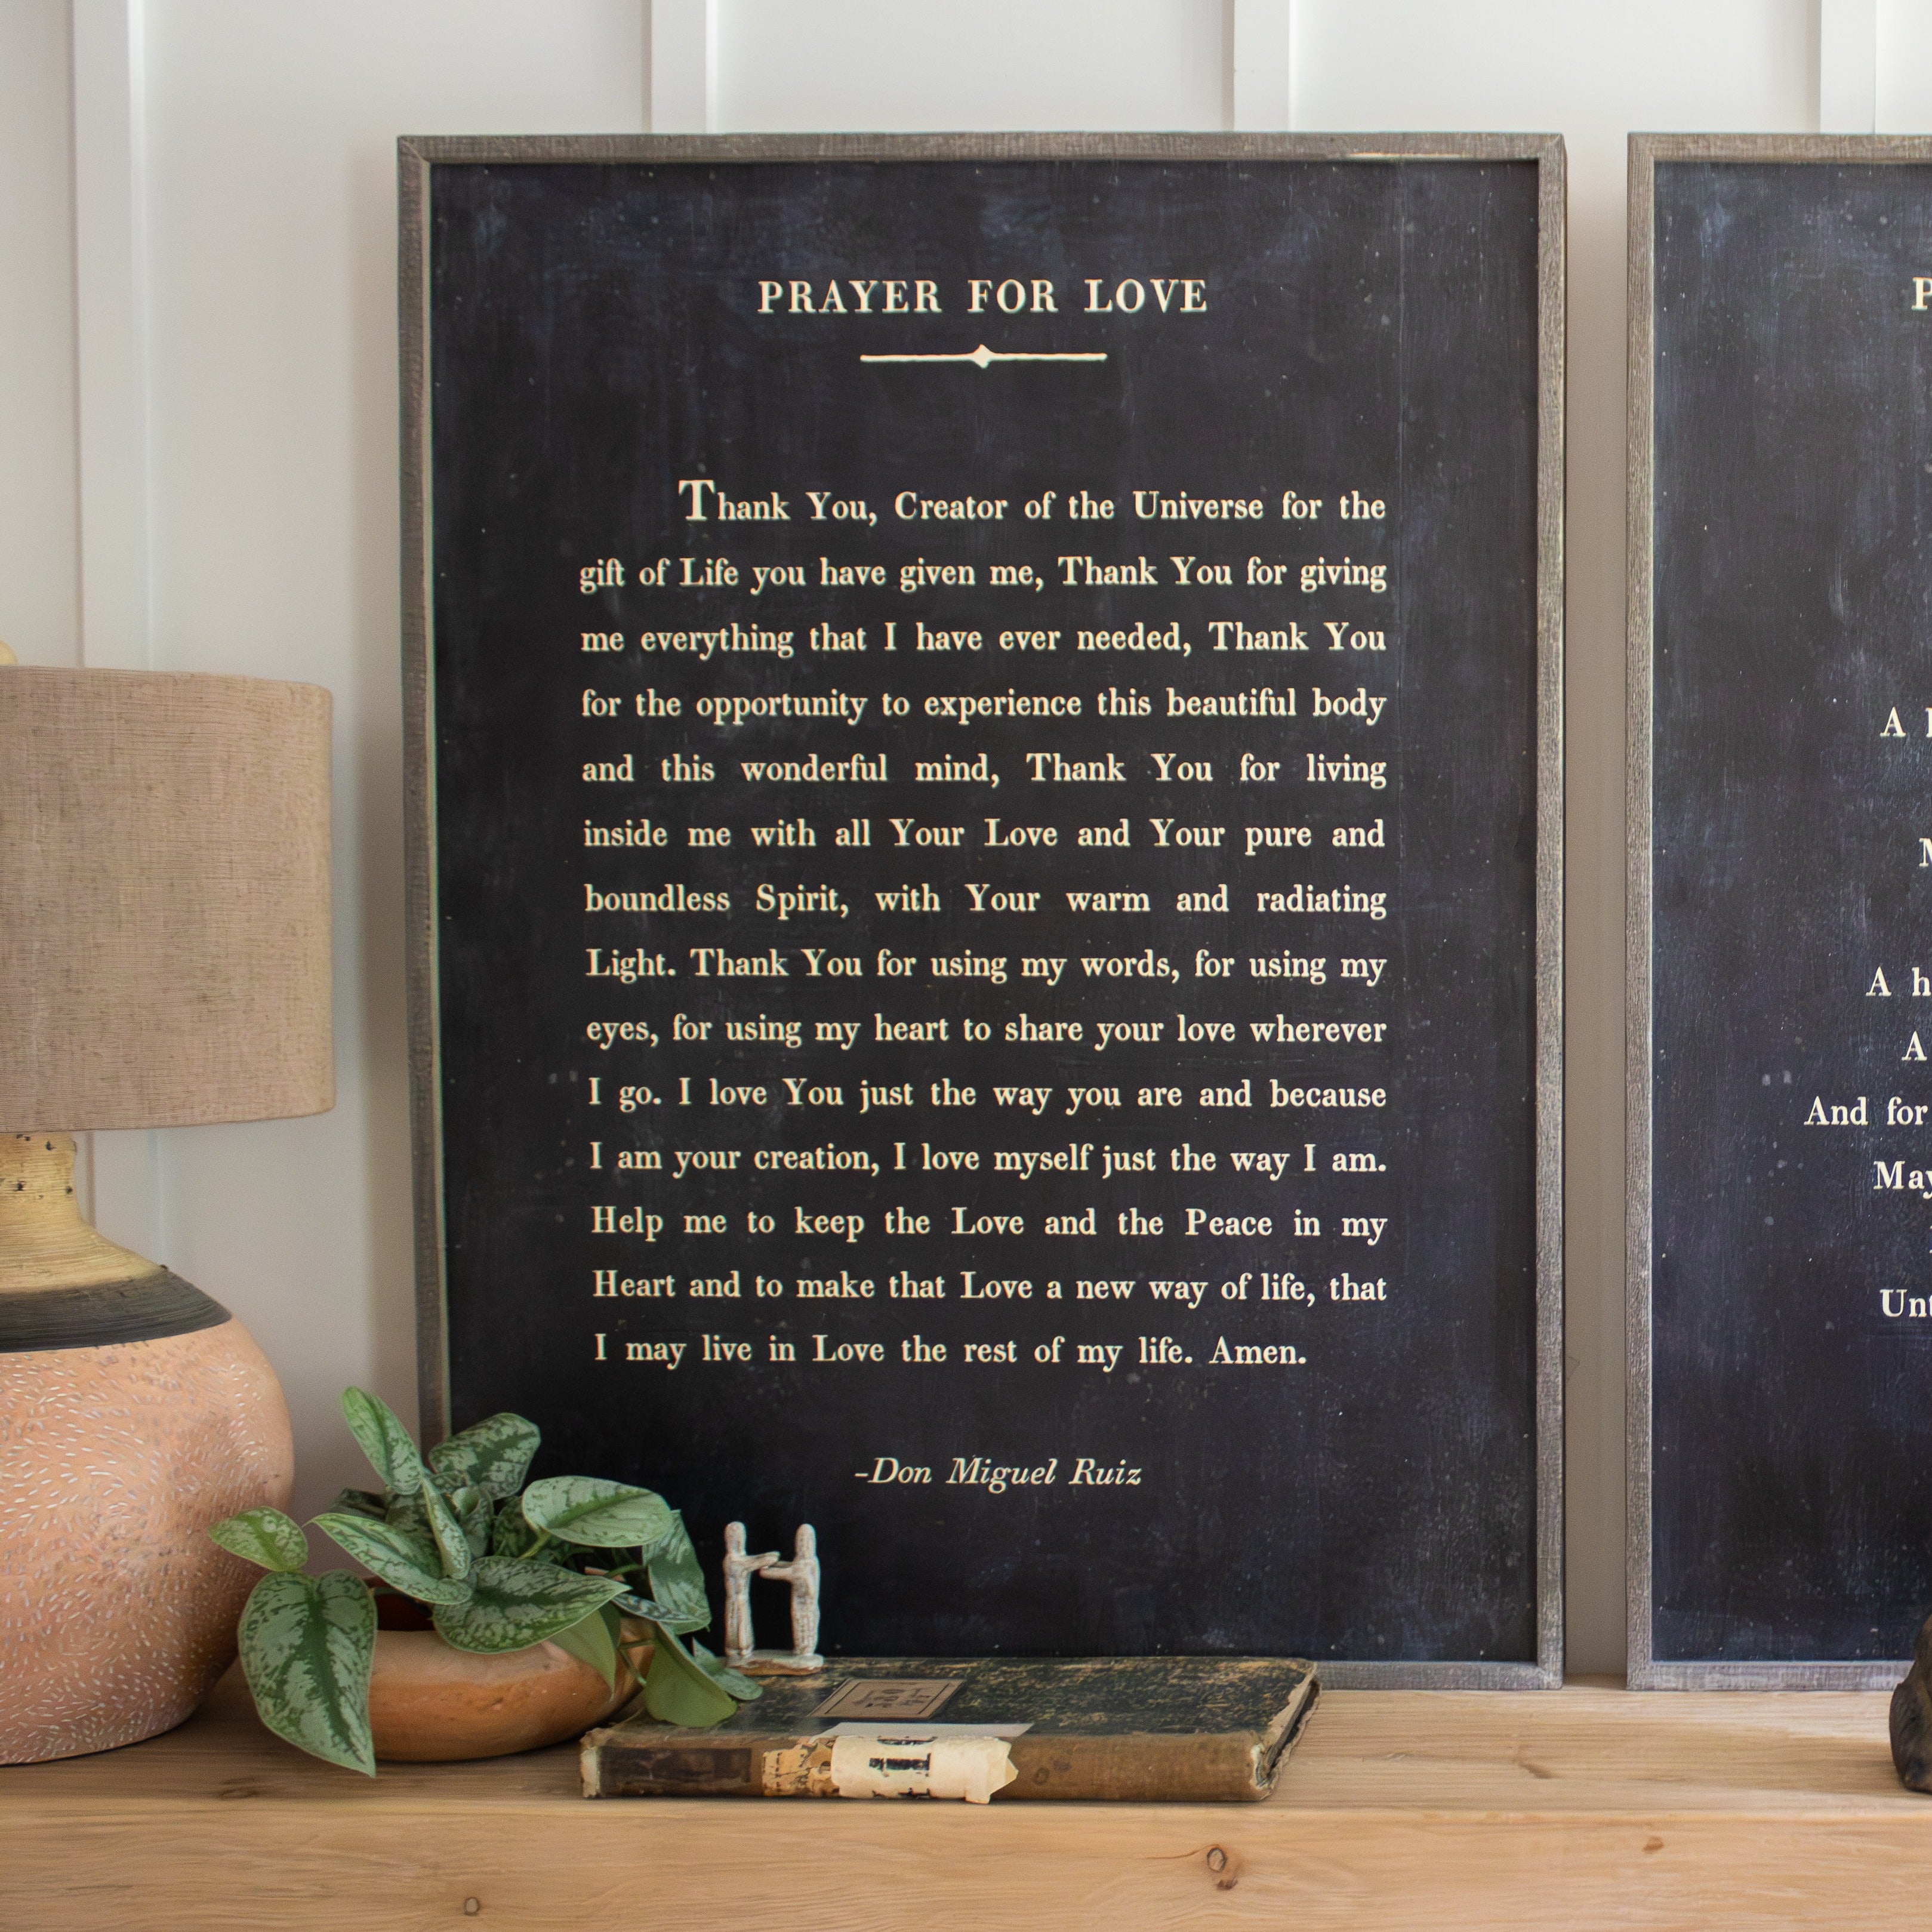 PRAYER FOR LOVE
Thank You, Creator of the Universe for the
gift of Life you have given me, Thank You for giving
me everything that I have ever needed, Thank You
for the opportunity to experience this beautiful body
and this wonderful mind, Thank You for living
inside me with all Your Love and Your pure and
boundless Spirit, with Your warm and radiating
Light. Thank You for using my words, for using my
eyes, for using my heart to share your love wherever
I go. I love You just the way you are and because
I am your creation, I love myself just the way I am.
Help me to keep the Love and the Peace in my
Heart and to make that Love a new way of life, that
I may live in Love the rest of my life. Amen.
-Don Miguel Ruiz
A
A
A
And for